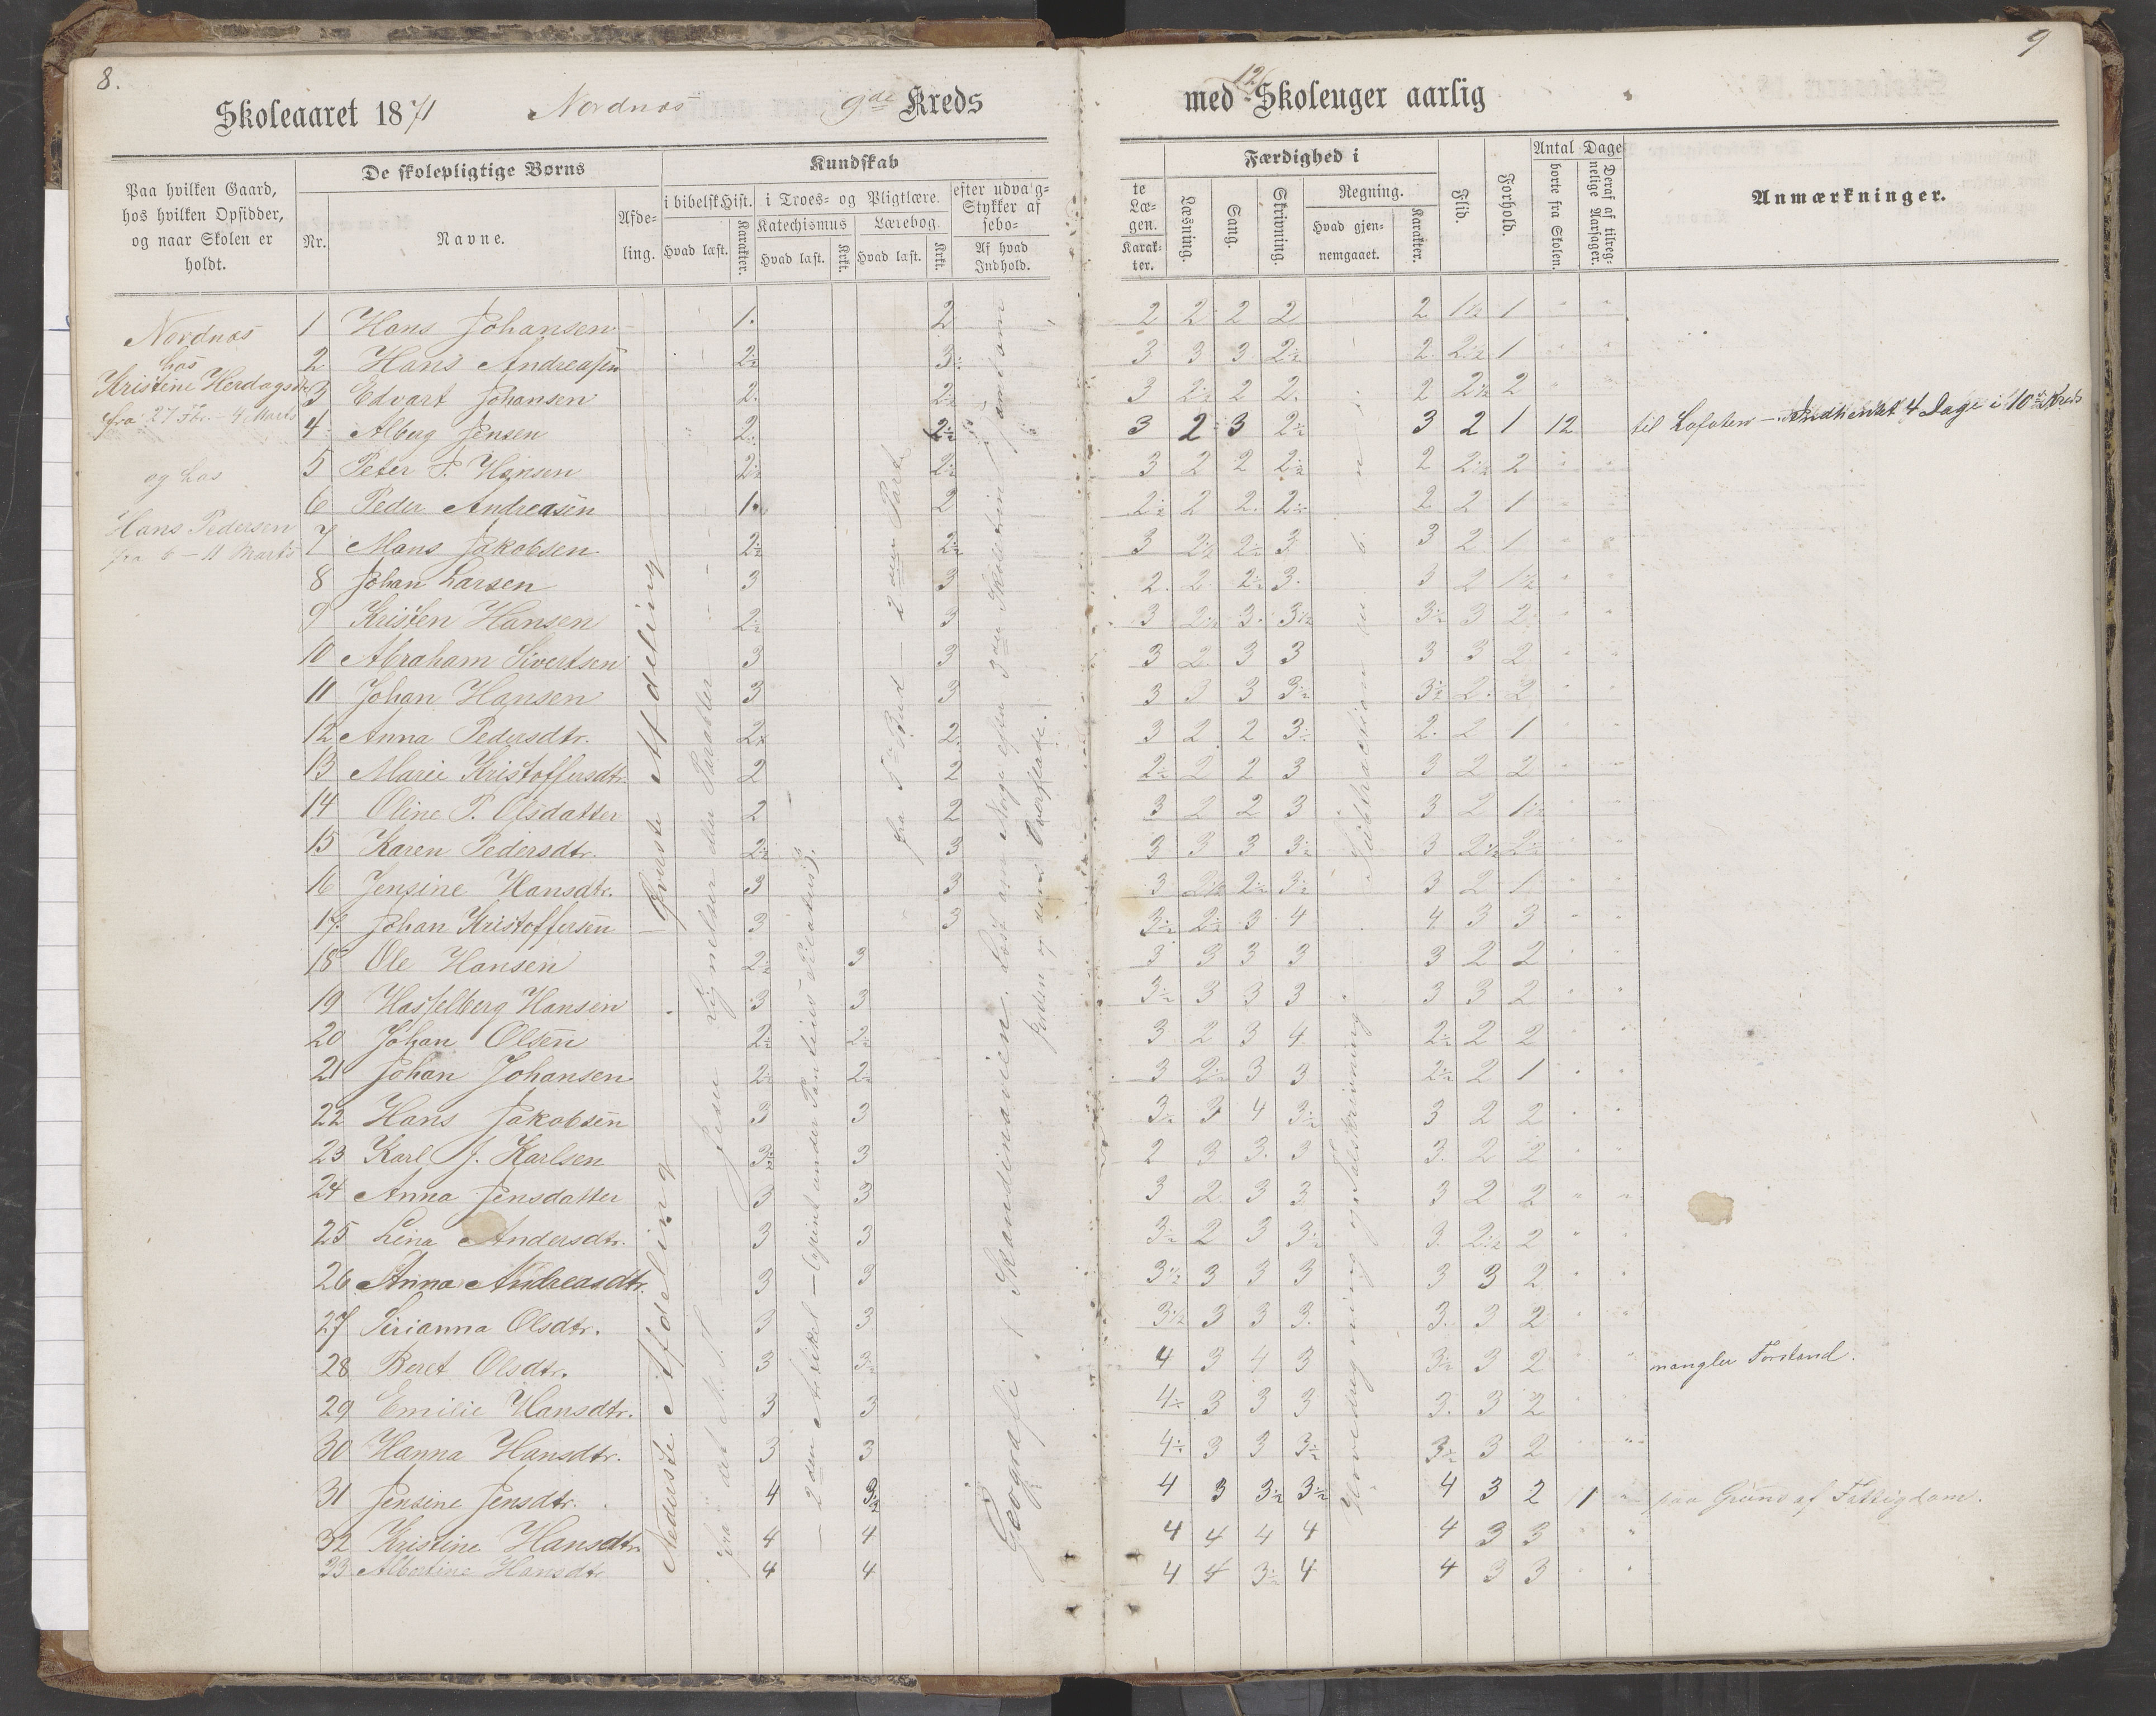 8.
Skoleaaret 1871 Nordnæs 9de Kreds
Paa hvilken Gaard,
hos hvilken Opsidder,
og naar Skolen er
holdt.
De skolepligtige Børns
Nr.
Navne.
Afde-
ling.
Kundskab
i bibelsk Hist.
Hvad læst.
Karakter.
i Troes- og Pligtlære.
Katechismus
Hvad læst.
Krkt.
Lærebog.
Hvad læst.
Krkt.
efter udvalg-
Stykker af
sebo-
Af hvad
Indhold.
Nordnæs
hos
Kristine Herdagsdtr
fra 27 Fbr. - 4 Marts
og hos
Hans Pedersen
fra 6 - 11 Marts
1 Hans Johansen 1. 2
2 Hans Andreassen 2½ 3
3 Edvart Johansen 2. 2½
4 Alberg Jensen 2. 2½
5 Peter P. Hansen 2½ 2½
6 Peder Andreasen 1. 2
7 Mons Jakobsen 2½ 2½
8 Johan Larsen 3 3
9 Kristen Hansen 2½ 3
10 Abraham Sivertsen 3 3
11 Johan Hansen 3 3
12 Anna Pedersdtr. 2½ 2.
13 Marie Kristoffersdtr. 2 2
14 Oline P. Olsdatter 2 2
15 Karen Pedersdtr. 2½ 3
16 Jensine Hansdtr. 3 3
17 Johan Kristoffersen 3 3
18 Ole Hansen 2½ 3
19 Hasselberg Hansen 3 3
20 Johan Olsen 2½ 2½
21 Johan Johansen 2½ 2½
22 Hans Jakobsen 3 3
23 Karl J. Karlsen 3½ 3
24 Anna Jensdatter 3 3
25 Lina Andersdtr. 3 3
26 Anna Andreasdtr. 3 3
27 Sirianna Olsdtr. 3 3
28 Beret Olsdtr. 3 3½
29 Emilie Hansdtr. 3 3
30 Hanna Hansdtr. 3 3
31 Jensine Jensdtr. 4 3½
32 Kristine Hansdtr 4 4
33 Albertine Hansdtr 4 4
Øverste Afdeling
Nederste Afdeling
fra det N. T. Jesu Lignelser eller Parabler
2den Artikel - (Pient under Pontius Pilatus).
fra 5te Bud - 2den Part
Geografi: Skandinavien. Læst om Norge efter 3die Skoletrin samt om
Jorden og dens Overflade.
9
med 12 Skoleuger aarlig
te
Læ-
gen.
Karak-
ter.
Færdighed i
Læsning.
Sang.
Skrivning.
Regning.
Hvad gjen-
nemgaaet.
Karakter.
Flid.
Forhold.
Antal Dage
borte fra Skolen.
Deraf af tilreg-
nelige Aarsager.
Anmærkninger.
2 2 2 2 2 1½ 1 " "
3 3 3 2½ 2 2½ 1 " "
3 2½ 2 2. 2 2½ 2 " "
3 2 3 2½ 3 2 1 12 til Lofoten - Indhentet 4 Dage i 10de Kreds
3 2 2 2½ 2 2½ 2 " "
2½ 2 2. 2½ 2 2 1 " "
3 2½ 2½ 3 3 2 1 " "
2. 2. 2½ 3. 3 2 1½ " "
3 2½ 3. 3½ 3½ 3 2 " "
3 2. 3 3 3 3 2 " "
3 3 3 3½ 3½ 2. 2 " "
3 2 2 3½ 2. 2 1 " "
2½ 2 2 3 3 2 2 " "
3 2 2 3 3 2 1½ " "
3 3 3 3½ 3 2½ 2½ " "
3 2½ 2½ 3½ 3 2 1 " "
3½ 2½ 3 4 4 3 3 " "
3 3 3 3 3 2 2 " "
3½ 3 3 3 3 3 2 " "
3 2 3 4 2½ 2 2 " "
3 2½ 3 3 2½ 2 1 " "
3½ 3 4 3½ 3 2 2 " "
2 3 3. 3 3. 2 2 " "
3 2 3 3 3 2 2 " "
3½ 2 3 3½ 3. 2½ 2 " "
3½ 3 3 3 3 3 2 " "
3½ 3 3 3. 3. 3 2 " "
4 3 4 3 3½ 3 2 " " mangler Forstand.
4½ 3 3 3 3. 3 2 " "
4½ 3 3 3½ 3½ 3 2 " "
4 3 3½ 3½ 4 3 2 1 " paa Grund af Fattigdom.
4 4 4 4 4 3 3 " "
4 4 3½ 4 4 3 3 " "
Subtraction
Hovedregning og Talskrivning